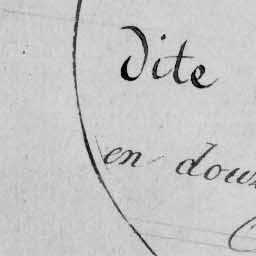 dite
en dou